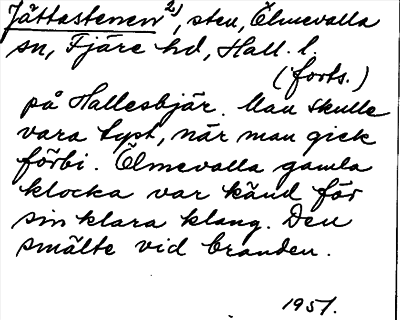 Jättastenen 2), sten, Ölmevalla
sn, Fjäre hd, Hall. l.
(forts.)
på Hallesbjär. Man skulle
vara tyst, när man gick
förbi. Ölmevalla gamla
klocka var känd för
sin klara klang. Den
smälte vid branden.
1951.